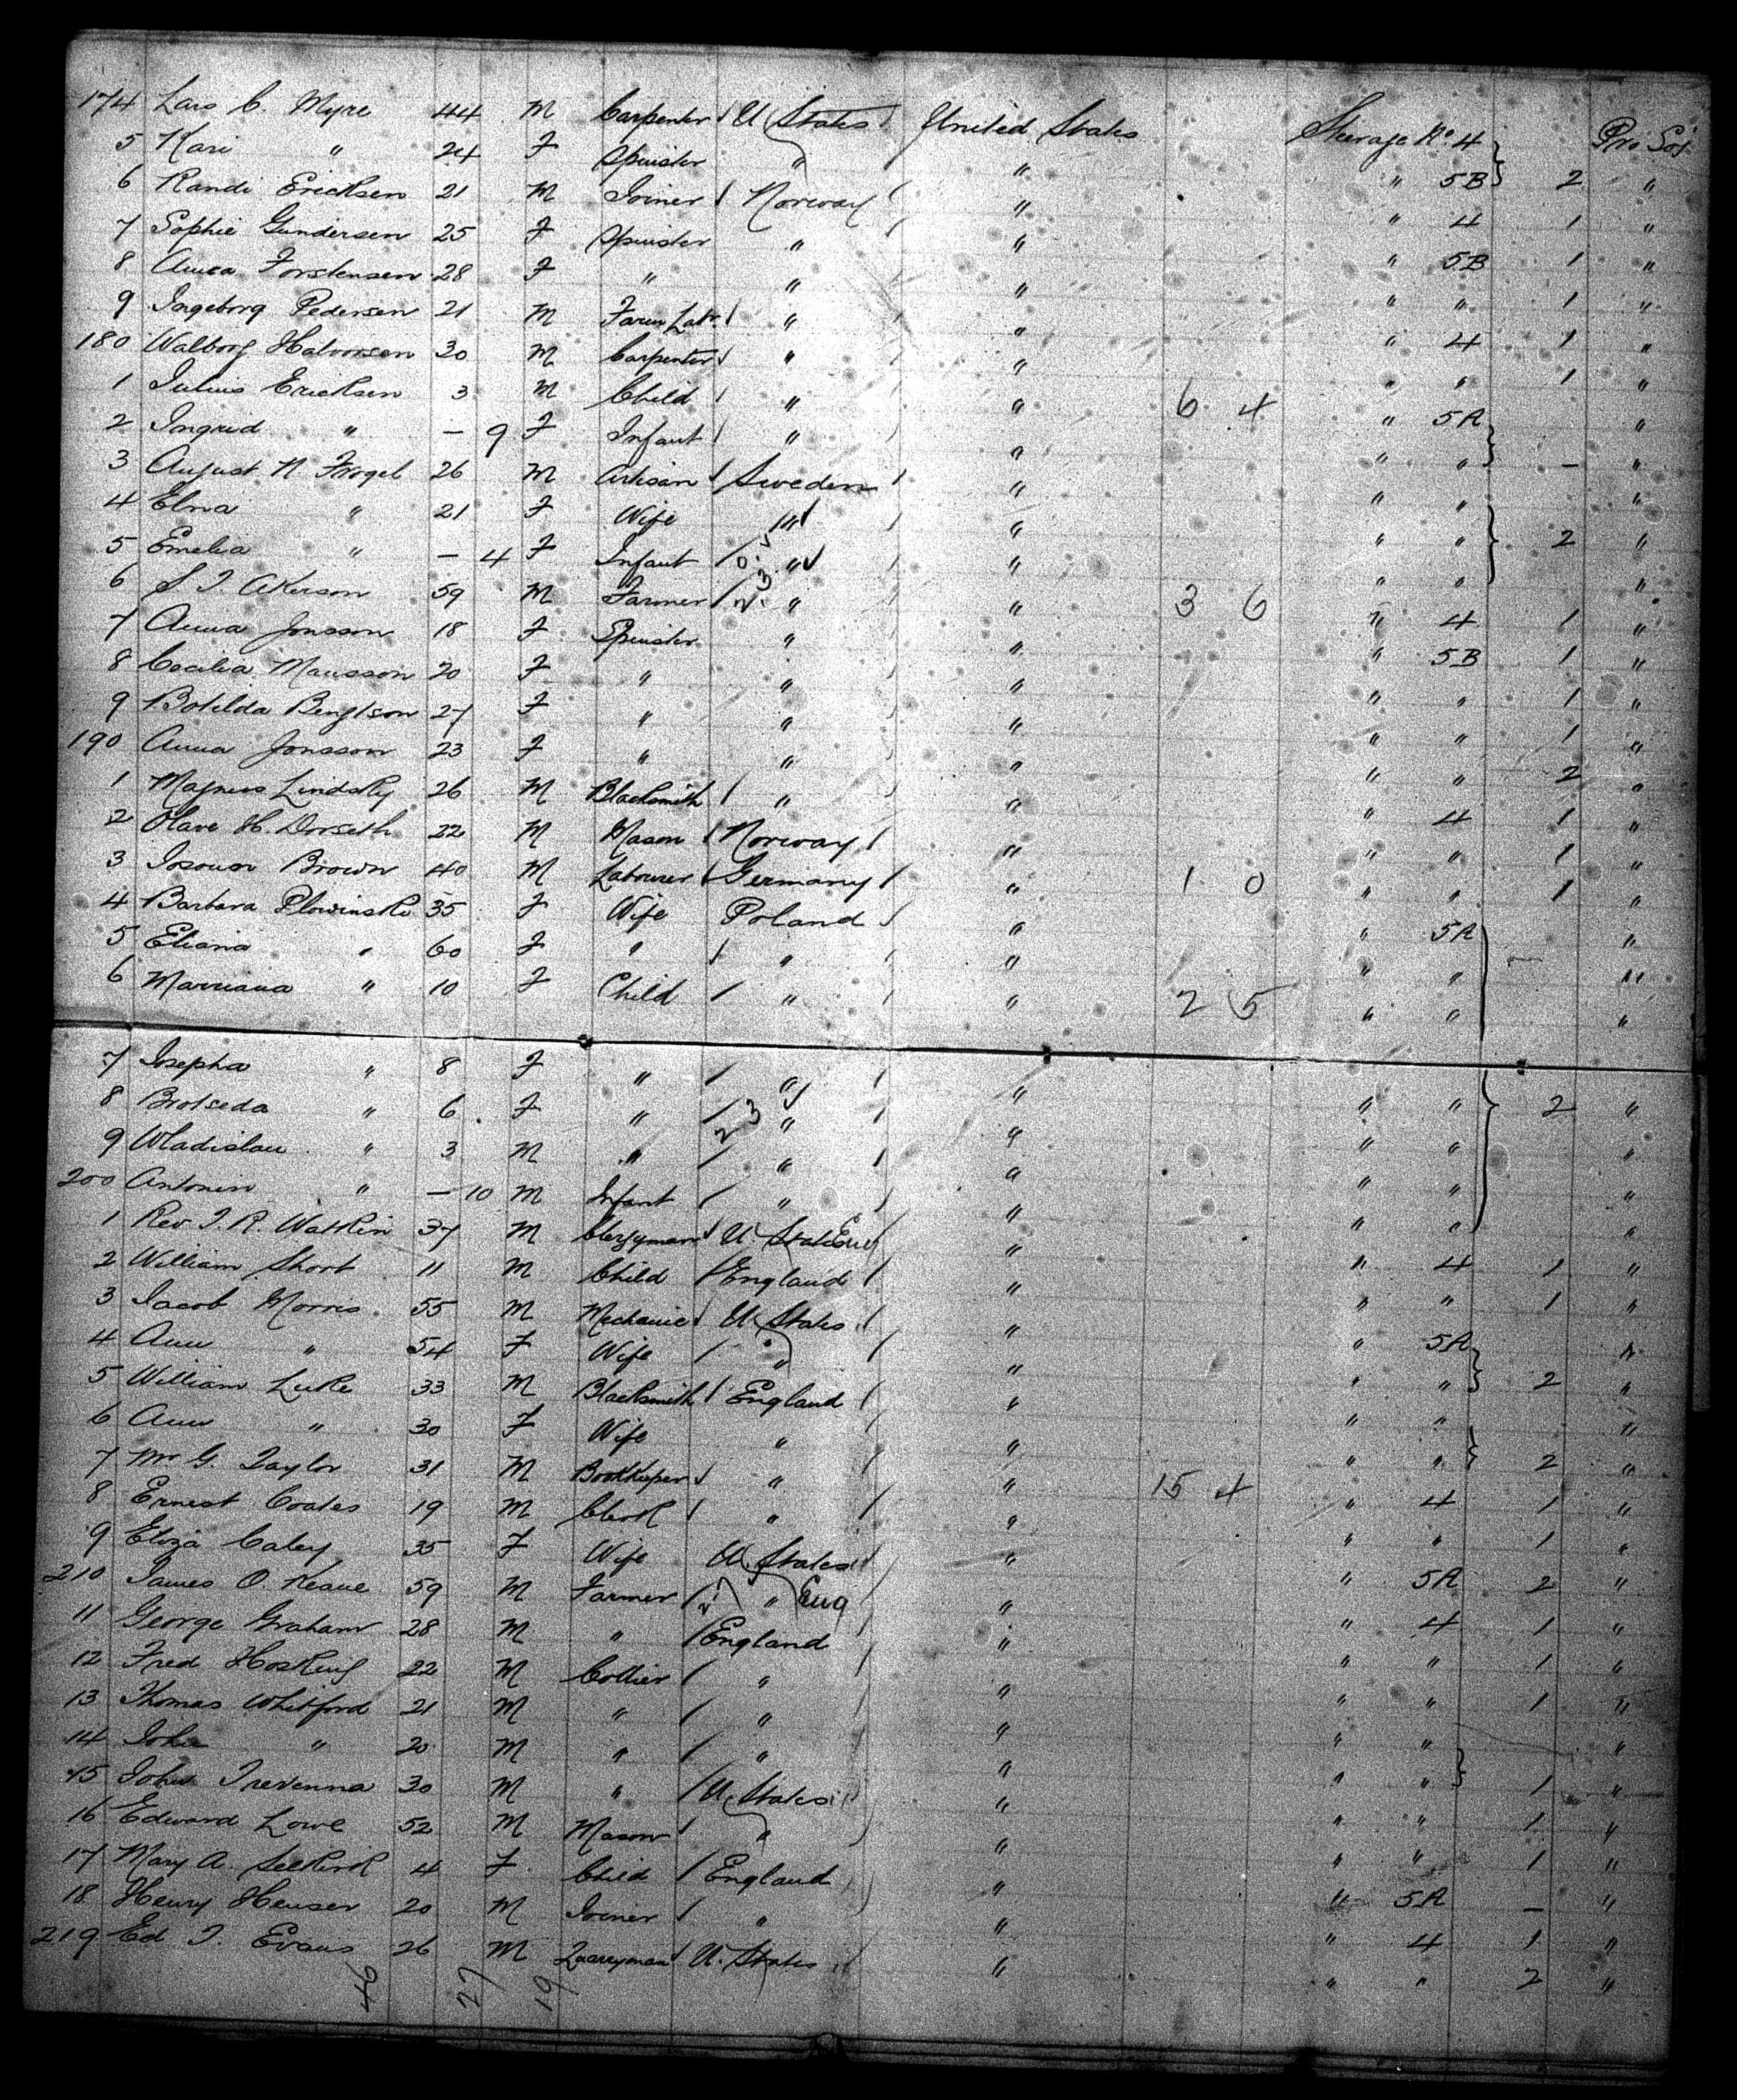 174 Lars C. Myre 44 M Carpenter U States United States Steerage No. 4 Pro Soj
5 Kari " 24 F Spinster " " " 5B 2 "
6 Randi Ericksen 21 M Joiner Norway " " 4 1 "
7 Sophie Gundersen 25 F Spinster " " " 5B 1 "
8 Anna Torstensen 28 F " " " " " 1 "
9 Ingeborg Pedersen 21 M Farm Labr " " " 4 1 "
180 Walborg Halvorsen 30 M Carpenter " " " " 1 "
1 Julius Ericksen 3 M Child " " 6 4 " 5A "
2 Ingrid " — 9 F Infant " " " " — "
3 August N Frogel 26 M Artisan Sweden " " " "
4 Elna " 21 F Wife " " " " 2 "
5 Emelia " — 4 F Infant " " " " "
6 S. J. Akerson 59 M Farmer 23 " " 3 6 " 4 1 "
7 Anna Jonsson 18 F Spinster " " " 5B 1 "
8 Cecilia Mansson 20 F " " " " " 1 "
9 Botilda Bengtson 27 F " " " " " 1 "
190 Anna Jonsson 23 F " " " " " 2 "
1 Magnus Lindsky 26 M Blacksmith " " " 4 1 "
2 Olave H. Dorseth 22 M Mason Norway " " " 1 "
3 Brown 40 M Labourer Germany " 1 0 " " 1 "
4 Barbara Plowinski 35 F Wife Poland " " 5A "
5 Eliana " 60 F " " " " " — "
6 Marriana " 10 F Child " " 2 5 " " "
7 Josepha " 8 F " " " " " 2 "
8 Brotseda " 6 F " 23 " " " " "
9 Wladislau " 3 M " " " " " "
200 Antonin " — 10 M Infant " " " " "
1 Rev J. R. Watkin 37 M Clergyman U. States Eng " " 4 1 "
2 William Short 11 M Child England " " " 1 "
3 Jacob Morris 55 M Mechanic U States " " 5A "
4 Ann " 54 F Wife " " " " 2 "
5 William Luke 33 M Blacksmith England " " " "
6 Ann " 30 F Wife " " " " 2 "
7 Mr G. Taylor 31 M Bookkeeper " " 15 4 " 4 1 "
8 Ernest Coates 19 M Clerk " " " " 1 "
9 Eliza Caley 35 F Wife U. States " " 5A 2 "
210 James O. Keane 59 M Farmer " Eng " " 4 1 "
11 George Graham 28 M " England " " " 1 "
12 Fred Hosking 22 M Collier " " " " 1 "
13 Thomas Whitford 21 M " " " " " "
14 John " 20 M " " " " " 1 "
15 John Trevenna 30 M " U. States " " " 1 "
16 Edward Lowe 52 M Mason " " " " 1 "
17 Mary A. Selkirk 4 F Child England " " 5A — "
18 Henry Heuser 20 M Joiner " " " 4 1 "
219 Ed J. Evans 26 M Quarryman U. States " " " 2 "
46 27 19